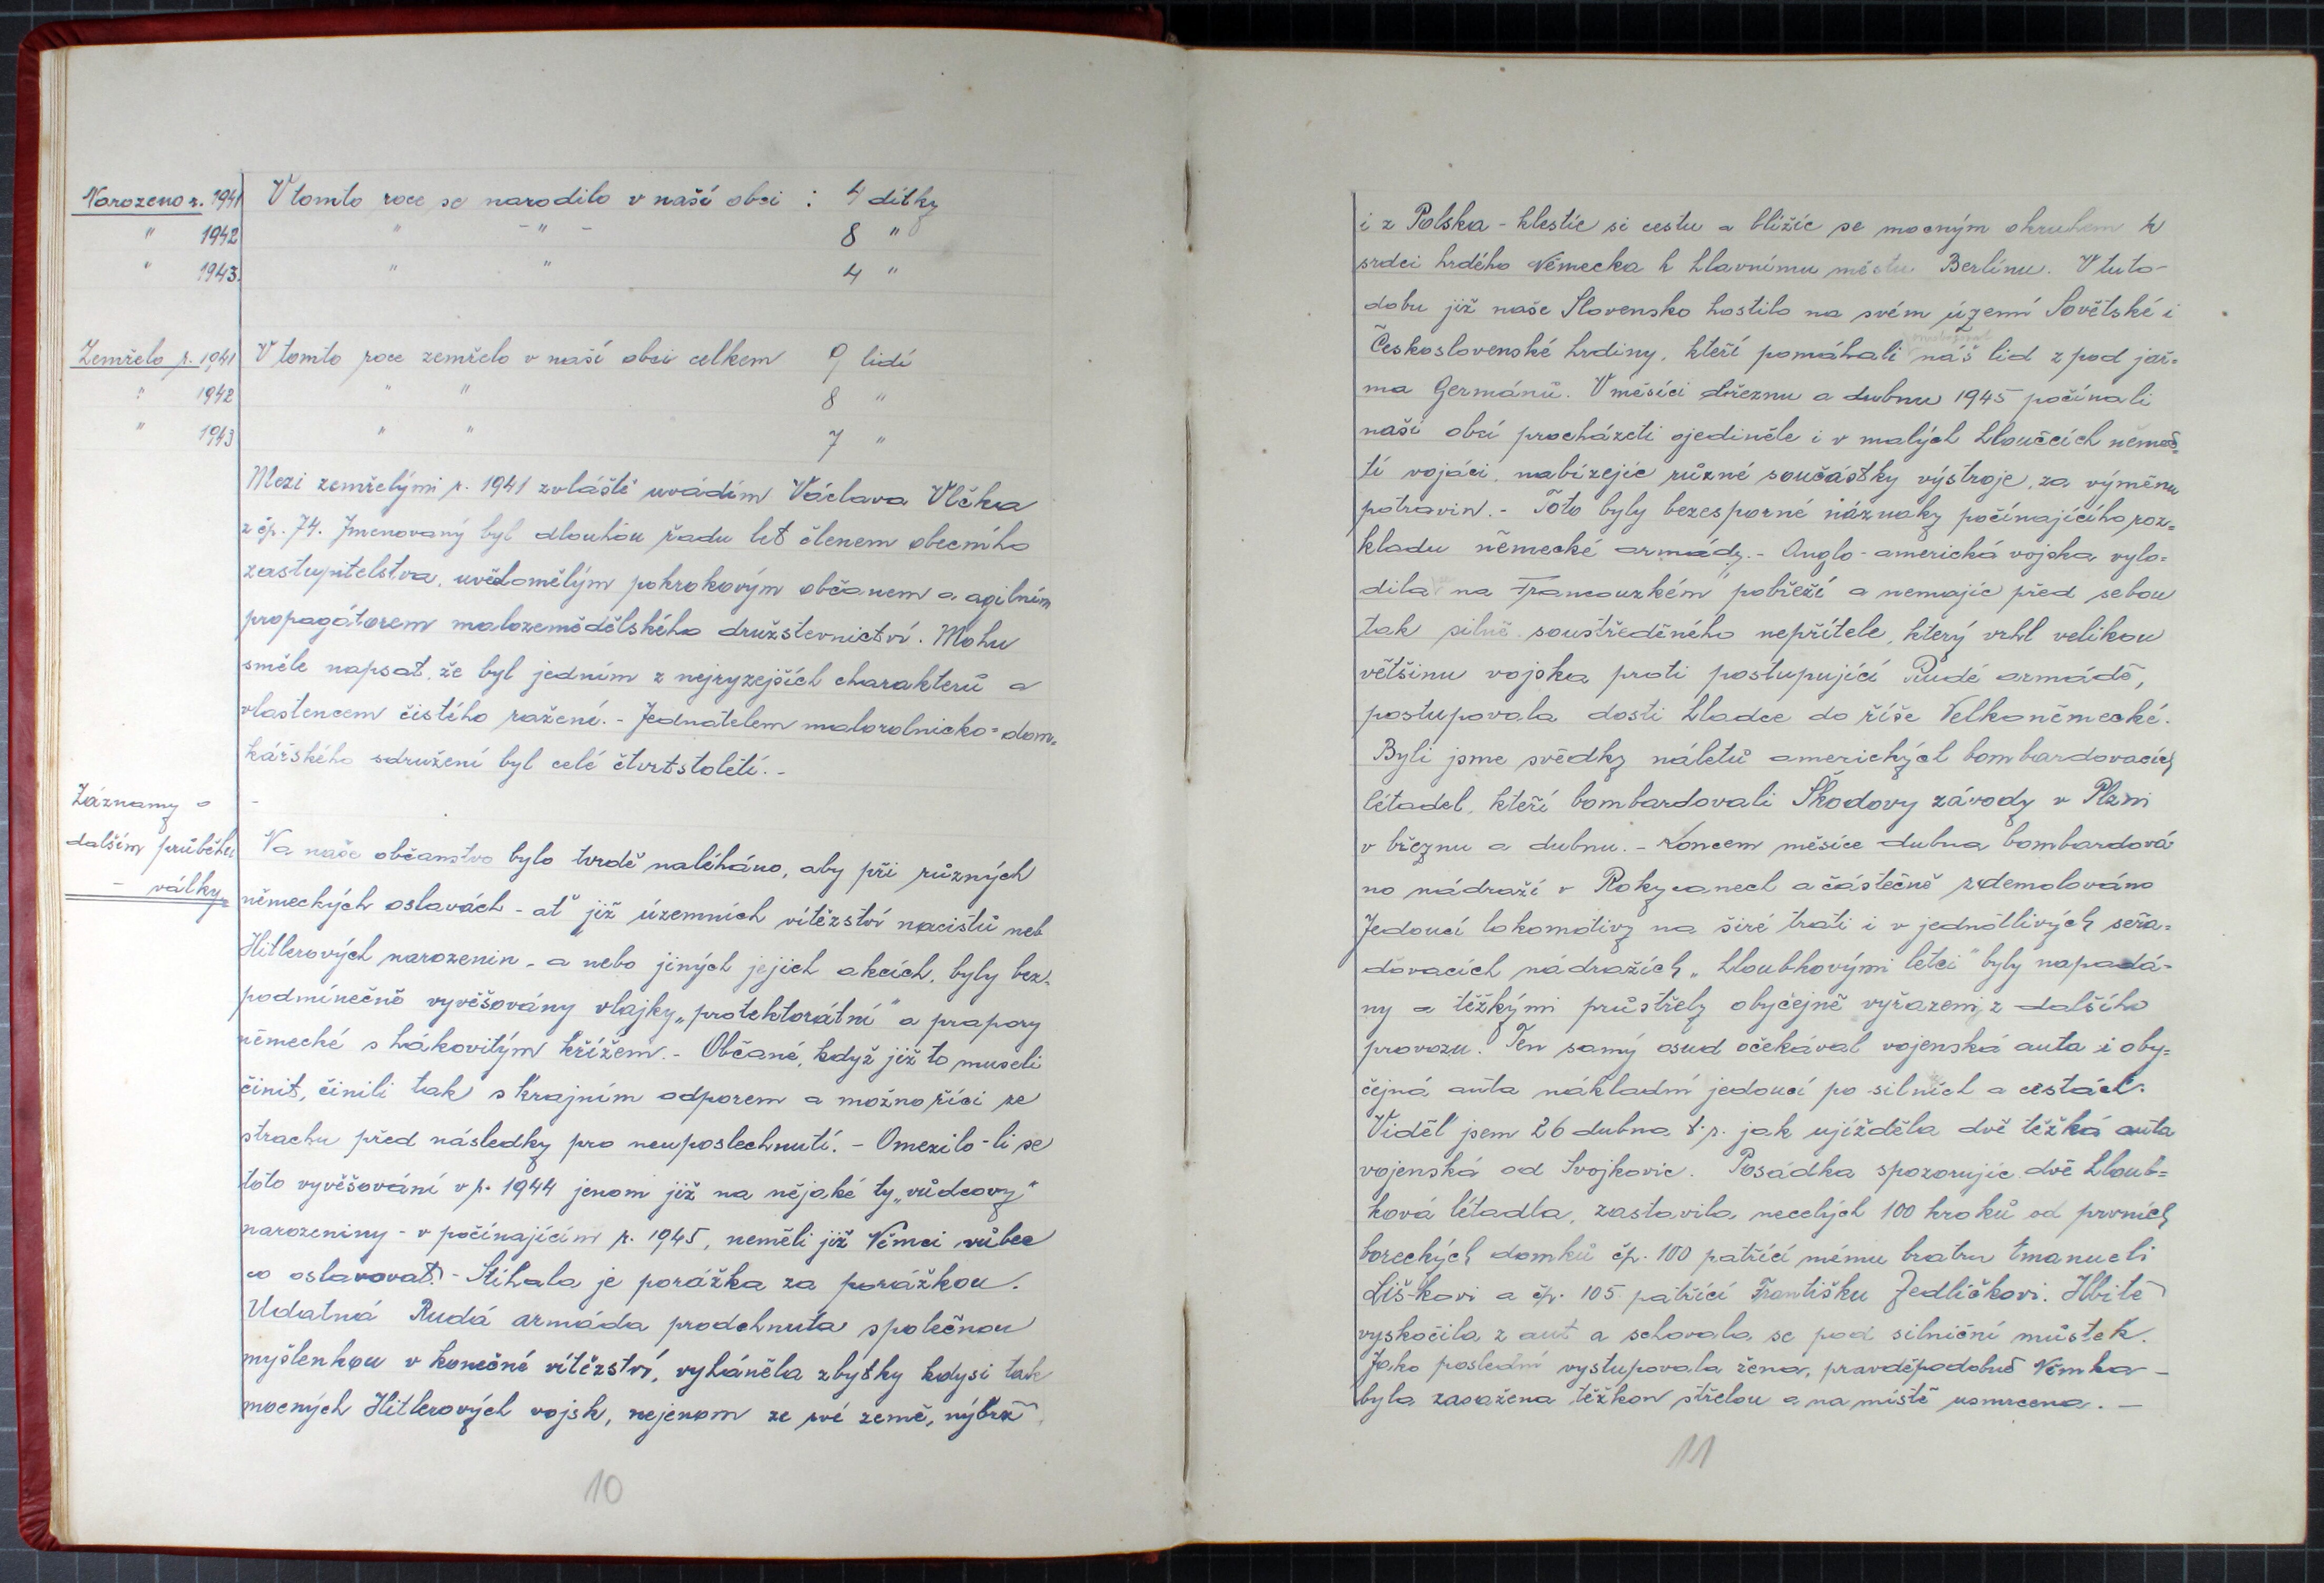 Narozeno r. 1941 V tomto roce se narodilo v naší obci : 4 dítky
" 1942 " - " - 8 "
" 1943. " " 4 "
Zemřelo r. 1941 V tomto roce zemřelo v naší obci celkem 9 lidí
" 1942 " " 8 "
" 1943 " " 7 "
Mezi zemřelými r. 1941 zvláště uvádím Václava Vlčka
z čp. 74. Jmenovaný byl dlouhou řadu let členem obecního
zastupitelstva, uvědomělým pokrokovým občanem a agilním
propagátorem malozemědělského družstevnictví. Mohu
směle napsat, že byl jedním z nejryzejších charakterů a
vlastencem čistého ražení. - Jednatelem malorolnicko=dom=
kářského sdružení byl celé čtvrtstoletí. -
Záznamy o
dalším průběhu
- války
Na naše občanstvo bylo tvrdě naléháno, aby při různých
německých oslavách - ať již územních vítězství nacistů neb
Hitlerových narozenin - a nebo jiných jejich akcích, byly bez-
podmínečně vyvěšovány vlajky „protektorátní" a prapory
německé s hákovitým křížem. - Občané, když již to museli
činit, činili tak s krajním odporem a možno říci ze
strachu před následky pro neuposlechnutí. - Omezilo-li se
toto vyvěšování v r. 1944 jenom již na nějaké ty „vůdcovy"
narozeniny - v počínajícím r. 1945, neměli již Němci vůbec
co oslavovat. - Stíhala je porážka za porážkou.
Udatná Rudá armáda prodchnuta společnou
myšlenkou v konečné vítězství, vyháněla zbytky kdysi tak
mocných Hitlerových vojsk, nejenom ze své země, nýbrž
10
i z Polska - klestíc si cestu a blížíc se mocným okruhem k
srdci hrdého Německa k hlavnímu městu Berlínu. V tuto-
dobu již naše Slovensko hostilo na svém území Sovětské i
Československé hrdiny, kteří pomáhali náš lid z pod jař=
ma Germánů. V měsíci březnu a dubnu 1945 počínali
naší obcí procházeti ojediněle i v malých hloučcích němeč=
tí vojáci, nabízejíc různé součástky výstroje, za výměnu
potravin. - Toto byly bezesporné náznaky počínajícího roz=
kladu německé armády. - Anglo-americká vojska vylo=
dila na Francouzkém pobřeží a nemajíc před sebou
tak silně soustředěného nepřítele, který vrhl velikou
většinu vojska proti postupující Rudé armádě,
postupovala dosti hladce do říše Velkoněmecké.
Byli jsme svědky náletů amerických bombardovacích
létadel, kteří bombardovali Škodovy závody v Plzni
v březnu a dubnu. - Koncem měsíce dubna bombardová-
no nádraží v Rokycanech a částečně zdemolováno
Jedoucí lokomotivy na širé trati i v jednotlivých seřa=
ďovacích nádražích „hloubkovými letci" byly napadá=
ny a těžkými průstřely obyčejně vyřazeni z dalšího
provozu. Ten samý osud očekával vojenská auta i oby=
čejná auta nákladní jedoucí po silních a cestách.
Viděl jsem 26 dubna t. r. jak ujížděla dvě těžká auta
vojenská od Svojkovic. Posádka spozorujíc dvě hloub=
ková létadla, zastavila necelých 100 kroků od prvních
boreckých domků čp. 100 patřící mému bratru Emanueli
Liš-kovi a čp. 105 patřící Františku Jedličkovi. Hbitě
vyskočila z aut a schovala se pod silniční můstek.
Jako poslední vystupovala žena, pravděpodobně Němka -
byla zasažena těžkou střelou a na místě usmrcena. -
11